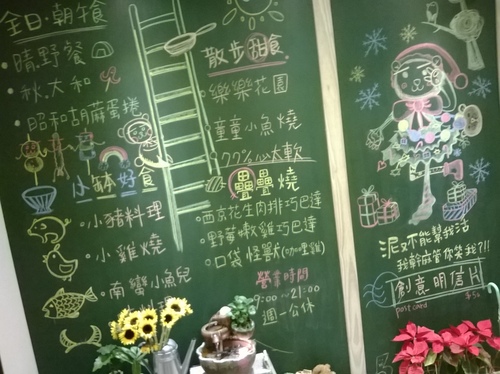 全日·朝午食
晴野餐
秋.大和
昭和胡蔴蛋捲
小缽好食
小豬料理
小雞燒
南蠻小魚兒
料理
散步甜食
樂樂花園
童童小魚燒
ㄅㄅ心太軟
疊疊燒
西京花生肉排巧巴達
野菇嫩雞巧巴達
口袋怪獸(咖哩雞)
營業時間
9:00~21:00
週一公休
泥又不能幫我活
我幹麻管你笑我?!!
創意明信片
post card
$50